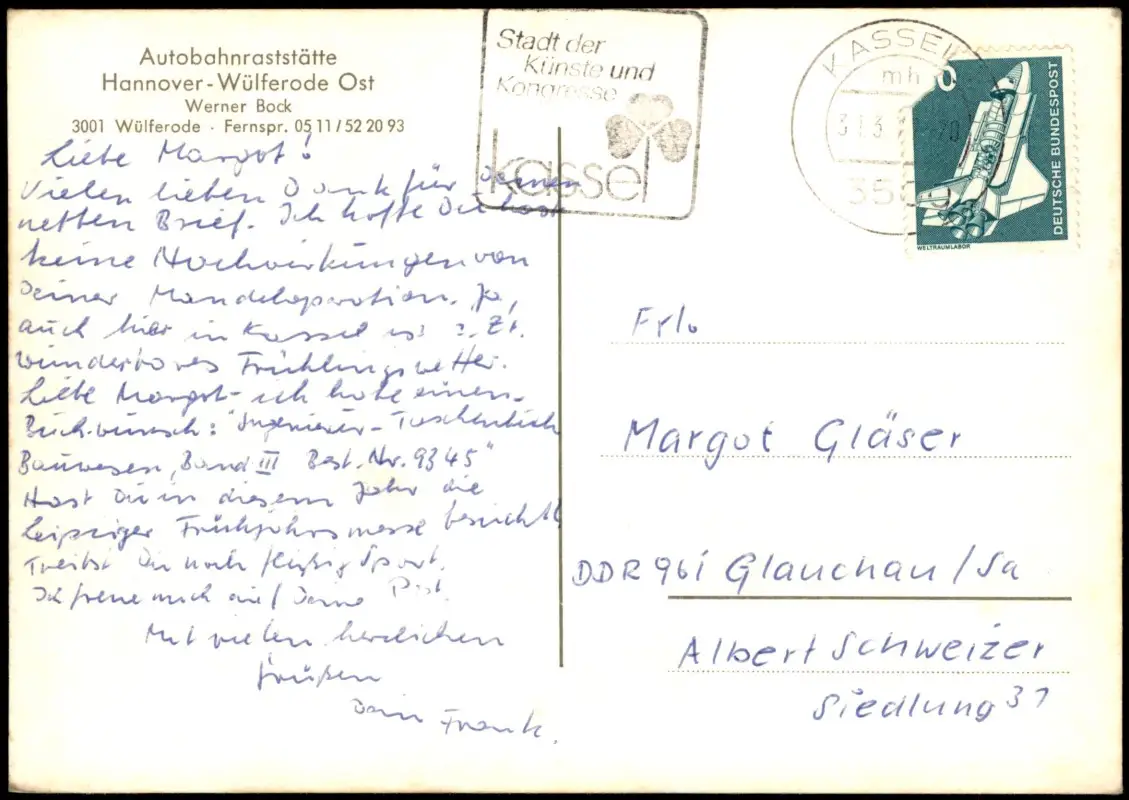 Autobahnraststätte
Hannover-Wülferode Ost
Werner Bock
3001 Wülferode · Fernspr. 05 11/52 20 93
Liebe Margot!
Vielen lieben Dank für Deinen
netten Brief. Ich hoffe Du hast
keine Nachwirkungen von
Deiner Mandeloperation. Ja,
auch hier in Kassel ist z. Zt.
wunderbares Frühlingswetter.
Liebe Margot - ich habe einen
Buchwunsch: "Ingenieur-Taschenbuch
Bauwesen, Band III Best. Nr. 9345"
Hast Du in diesem Jahr die
Leipziger Frühjahrsmesse besucht?
Treibst Du noch fleißig Sport.
Ich freue mich auf Deine Post.
Mit vielen herzlichen
Grüßen
Dein Frank.
Stadt der
Künste und
Kongresse
kassel
KASSEL
mh
35
0
DEUTSCHE BUNDESPOST
WELTRAUMLABOR
Frl.
Margot Gläser
DDR 961 Glauchau/Sa
Albert Schweizer
Siedlung 31